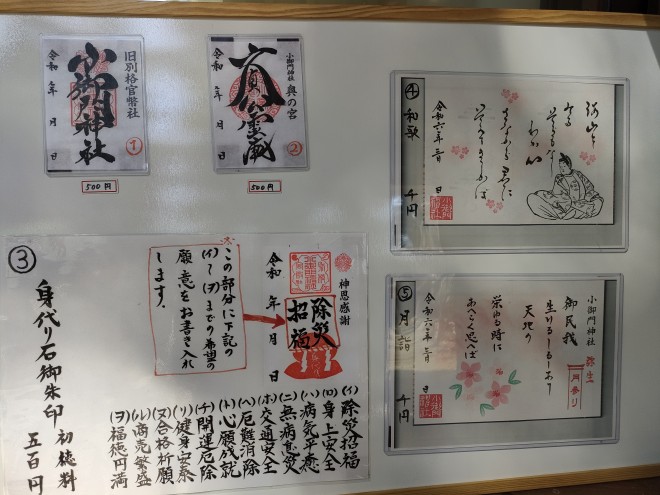 旧別格官幣社
小御門神社
令和 年 月 日
①
500円
小御門神社 奥の宮
令和 年 月 日
②
500円
③
身代り石御朱印 初穂料 五百円
この部分に下記の
(イ)〜(ヲ)までの希望の
願意をお書き入れ
します。
神恩感謝
除災
招福
令和 年 月 日
(イ)除災招福
(ロ)身上安全
(ハ)病気平癒
(ニ)無病息災
(ホ)交通安全
(ヘ)厄難消除
(ト)心願成就
(チ)開運厄除
(リ)健身安泰
(ヌ)合格祈願
(ル)商売繁盛
(ヲ)福徳円満
④和歌 千円
令和六年三月 日
⑤月詣 千円
小御門神社
弥生
月参り
御民我
生けるしるしあり
天地の
栄ゆる時に
あへらく思へば
令和六年三月 日